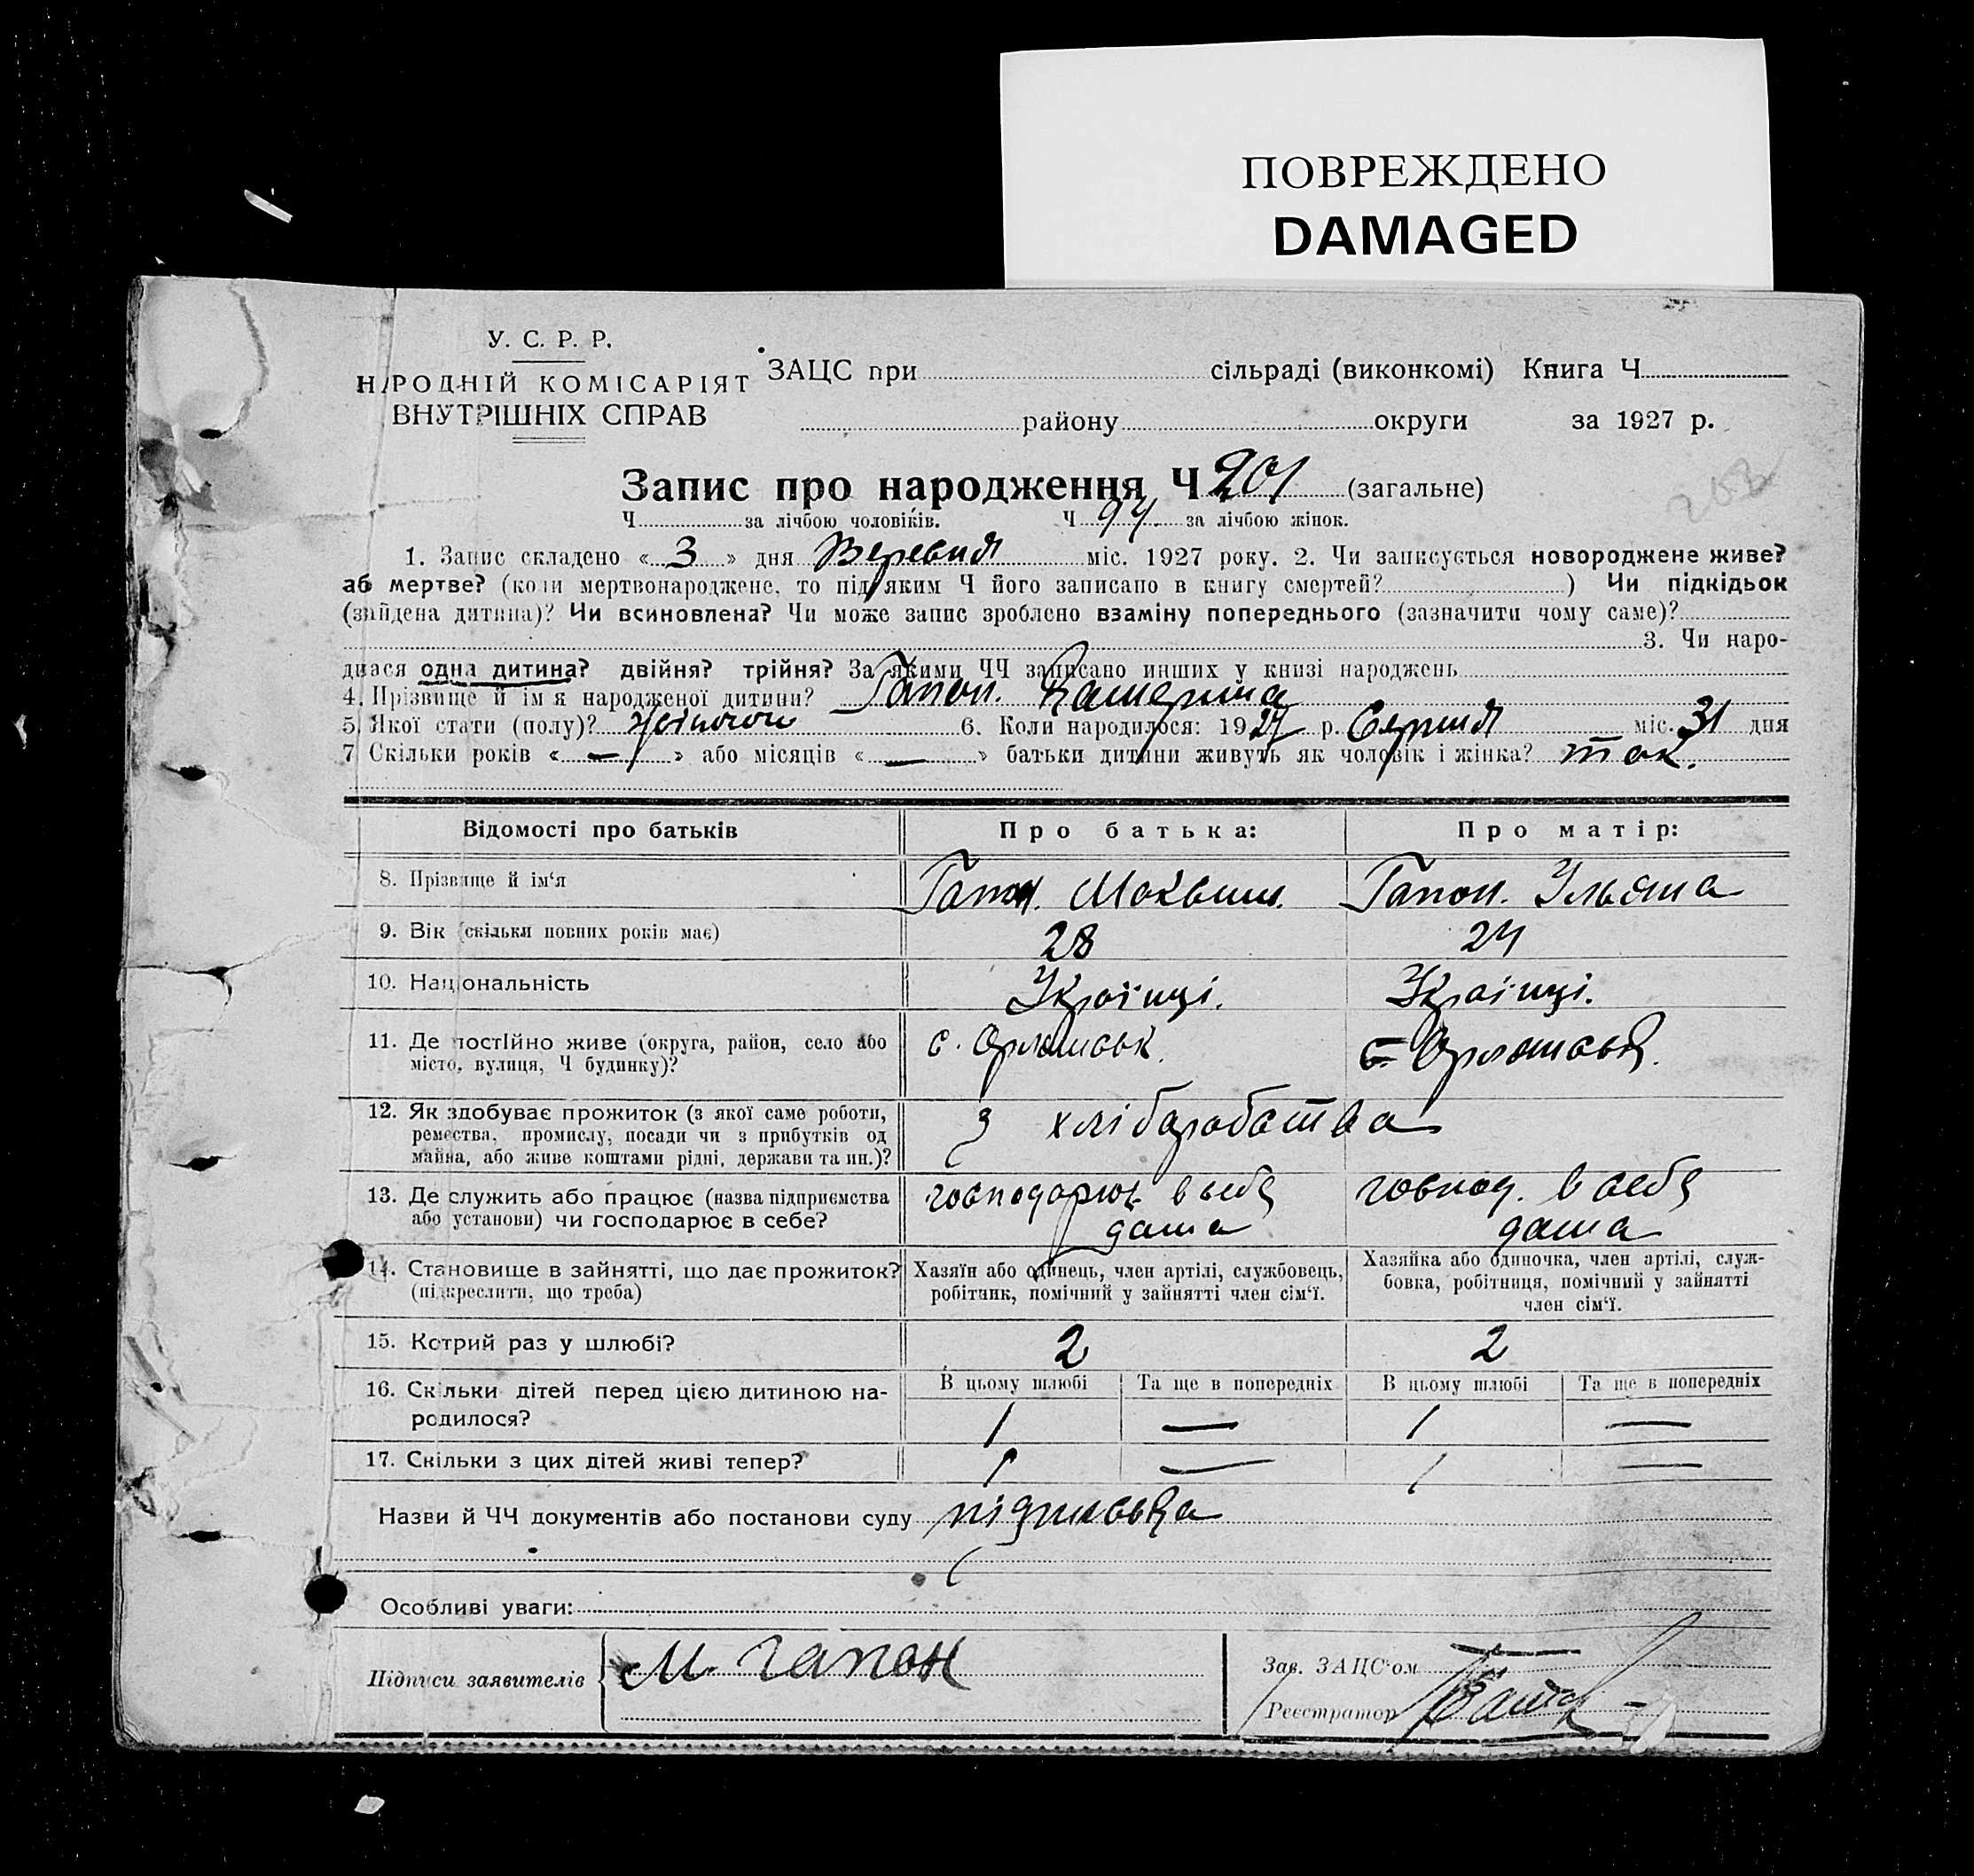 ПОВРЕЖДЕНО
DAMAGED
У. С. Р. Р.
НАРОДНІЙ КОМІСАРІЯТ
ВНУТРІШНІХ СПРАВ
ЗАЦС при сільраді (виконкомі) Книга Ч
району округи за 1927 р.
Запис про народження Ч 201 (загальне)
Ч за лічбою чоловіків. Ч 94 за лічбою жінок.
1. Запис складено « 3 » дня Вересня міс. 1927 року. 2. Чи записується новороджене живе?
аб мертве? (коли мертвонароджене, то під яким Ч його записано в книгу смертей? ) Чи підкідьок
(знайдена дитина)? Чи всиновлена? Чи може запис зроблено взаміну попереднього (зазначити чому саме)?
3. Чи наро-
дилася одна дитина? двійня? трійня? За якими ЧЧ записано инших у книзі народжень
4. Прізвище й ім я народженої дитини? Гапон. Катерина
5. Якої стати (полу)? жіночої 6. Коли народилося: 1927 р. Серпня міс. 31 дня
7 Скільки років « — » або місяців « — » батьки дитини живуть як чоловік і жінка? так.
Відомості про батьків Про батька: Про матір:
8. Прізвище й ім‘я Гапон. Гапон. Ульяна
9. Вік (скільки повних років має) 28 24
10. Національність Україці. Україці.
11. Де постійно живе (округа, район, село або
місто, вулиця, Ч будинку)?
с.
12. Як здобуває прожиток (з якої саме роботи,
ремества, промислу, посади чи з прибутків од
майна, або живе коштами рідні, держави та ин.)?
з хліборобства
13. Де служить або працює (назва підприємства
або установи) чи господарює в себе?
господарює в себе
дома
господ. в себе
дома
14. Становище в зайнятті, що дає прожиток?
(підкреслити, що треба)
Хазяїн або одинець, член артілі, службовець,
робітник, помічний у зайнятті член сім‘ї.
Хазяйка або одиночка, член артілі, служ-
бовка, робітниця, помічний у зайнятті
член сім‘ї.
15. Котрий раз у шлюбі? 2 2
16. Скільки дітей перед цією дитиною на-
родилося?
В цьому шлюбі Та ще в попередніх В цьому шлюбі Та ще в попередніх
1 — 1 —
17. Скільки з цих дітей живі тепер? 1 — 1 —
Назви й ЧЧ документів або постанови суду
Особливі уваги:
Підписи заявителів М. Гапон
Зав. ЗАЦС‘ом
Реєстратор